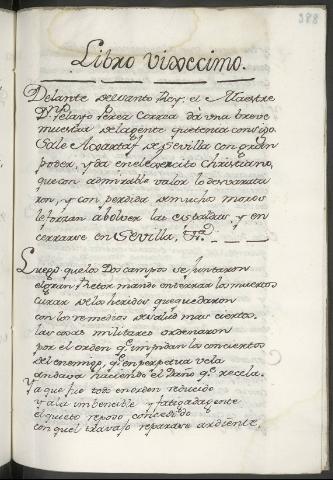 388
Libro Vndecimo.
Delante del Santo Rey, el Maestre
D. Pelayo Perez Correa dà una breve
muestra de la gente que tenia consigo.
Sale Axartaf de Sevilla con gran
poder, y da en el exercito christiano,
que con admirable valor lo desvarata
ron, y con perdida de muchos moros
le forzan a bolver las espaldas, y en
cerrarse en Sevilla,
Luego que los Dos campos se juntaron
el gran Retor mando enterrar los muertos
curar de los heridos que quedaron
con los remedios de salud mas ciertos.
las cosas militares ordenaron
por el orden q.e impidan los conciertos
del enemigo, q.e en perpetua vela
andava haciendo el Daño q.e recela.
Ya que fue todo en orden reducido
y a la imbencible y fatigada gente
el quieto reposo concedido
con que el travajo reparase ardiente,